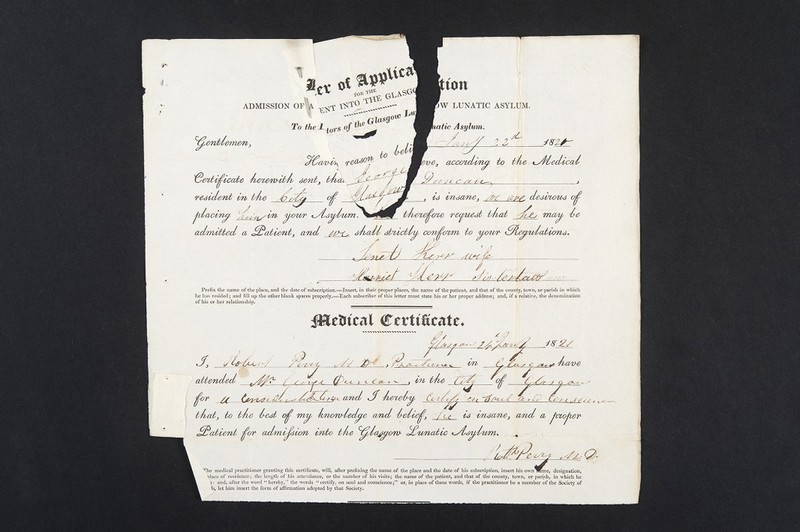 ter of Applica tion
FOR THE
ADMISSION OF A ENT INTO THE GLASGO OW LUNATIC ASYLUM.
To the I tors of the Glasgow Lu natic Asylum.
Gentlemen, 22th 1821
Havin reason to beli eve, according to the Medical
Certificate herewith sent, tha George Duncan
resident in the City of Glasgow, is insane, we are desirous of
placing him in your Asylum. therefore request that he may be
admitted a Patient, and we shall strictly conform to your Regulations.
Jenet Kerr wife
Kerr Sister
Prefix the name of the place, and the date of subscription.—Insert, in their proper places, the name of the patient, and that of the county, town, or parish in which
he has resided; and fill up the other blank spaces properly.—Each subscriber of this letter must state his or her proper address; and, if a relative, the denomination
of his or her relationship.
Medical Certificate.
Glasgow 24 Jany 1821
I, Robert Perry M D, in Glasgow have
attended Mr George Duncan, in the City of Glasgow
for a and I hereby certify on Soul and Conscience
that, to the best of my knowledge and belief, he is insane, and a proper
Patient for admission into the Glasgow Lunatic Asylum.
Perry M.D.
The medical practitioner granting this certificate, will, after prefixing the name of the place and the date of his subscription, insert his own name, designation,
place of residence; the length of his attendance, or the number of his visits; the name of the patient, and that of the county, town, or parish, in which he
and, after the word "hereby," the words "certify, on soul and conscience;" or, in place of these words, if the practitioner be a member of the Society of
s, let him insert the form of affirmation adopted by that Society.